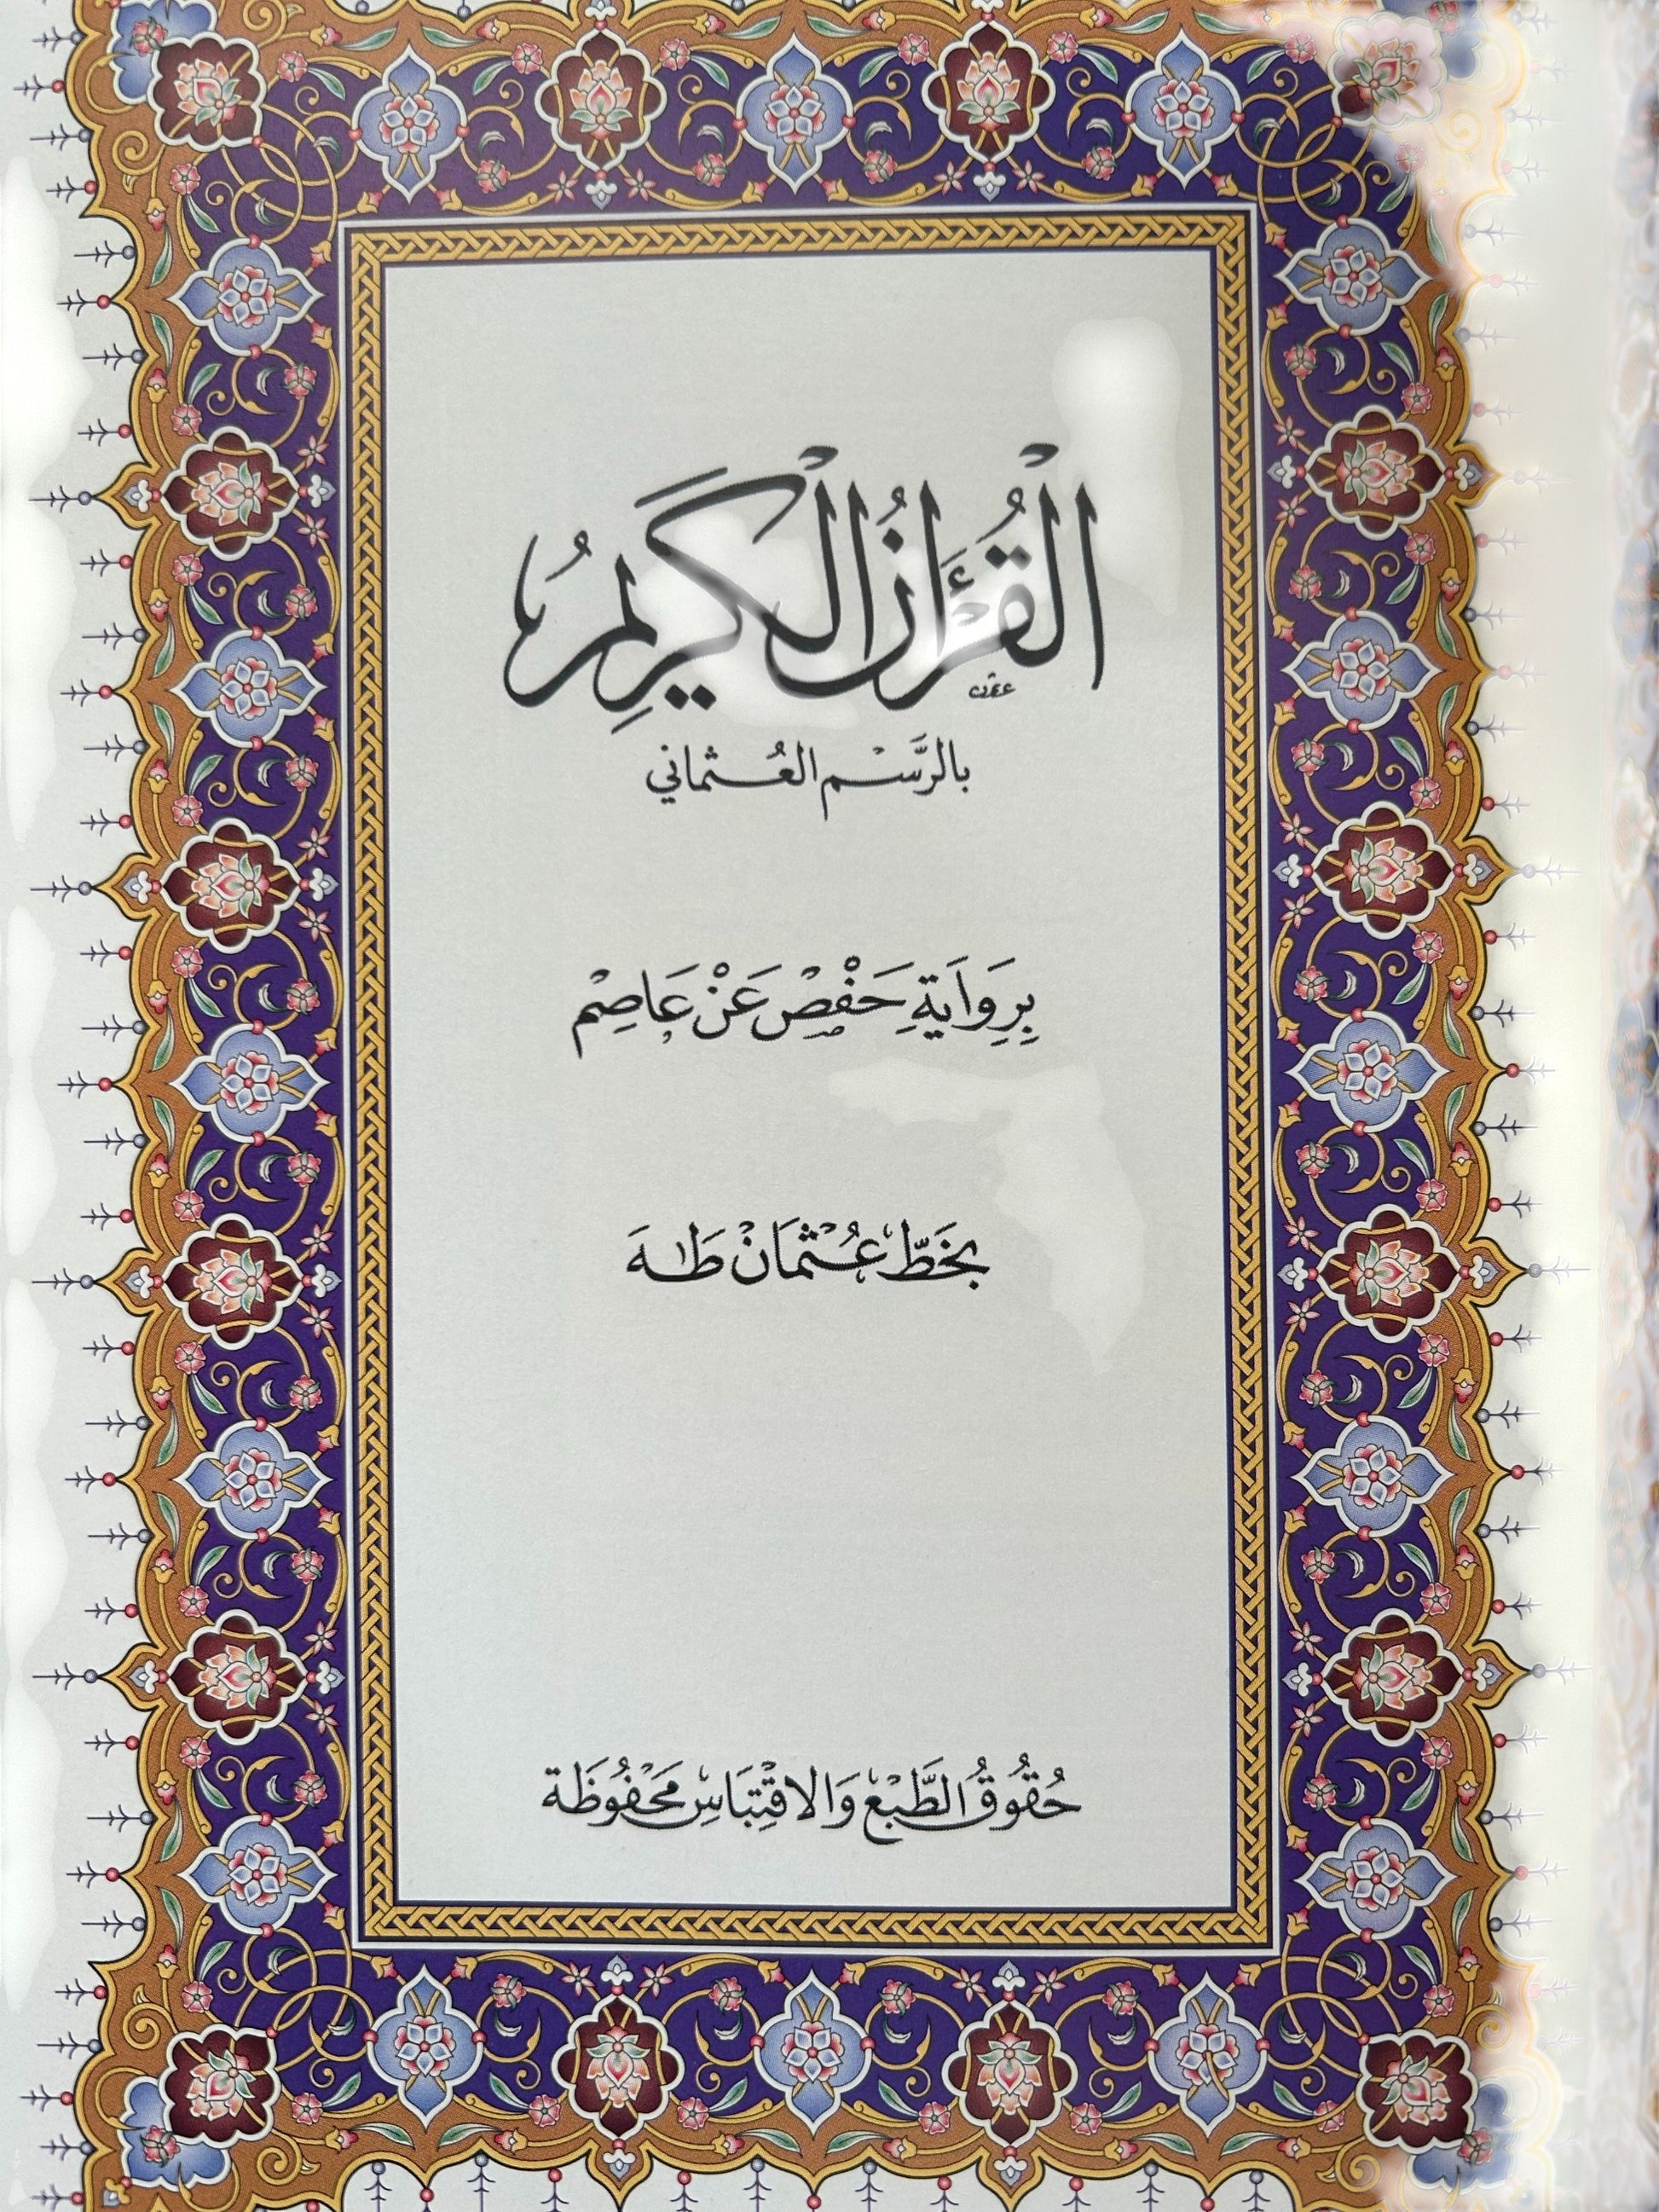 الْقُرْءَانُ الْكَرِيمُ
بالرَّسْم العُثماني
بِرِوَايَةِ حَفْصْ عَنْ عَاصِمْ
بخَطّ عُثْمَانْ طٰهَ
حُقُوقُ الطَّبْعِ وَالاقْتِبَاسِ مَحْفُوظَة